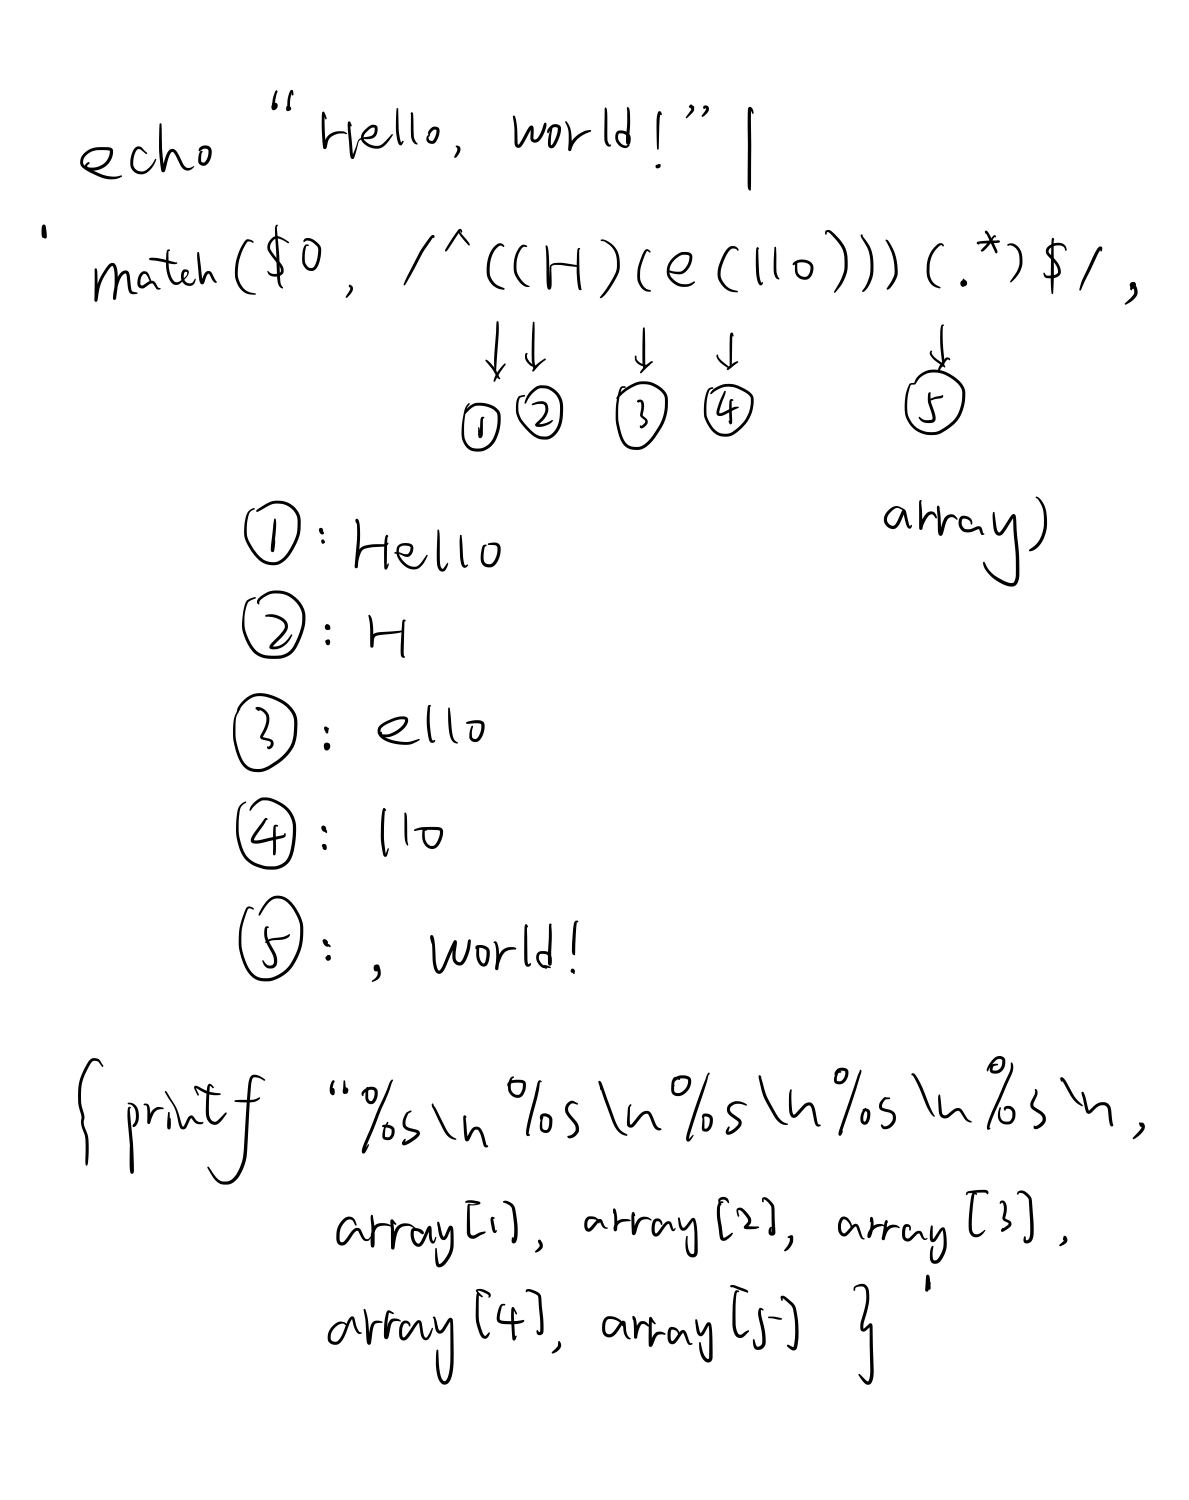 echo “Hello, world!” |
' match($0, /^((H)(e(llo)))(.*)$/,
↓ ↓ ↓ ↓ ↓
① ② ③ ④ ⑤
array)
①: Hello
②: H
③: ello
④: llo
⑤: , world!
{printf “%s\n %s\n%s\n%s\n%s\n,
array[1], array[2], array[3],
array[4], array[5] } '